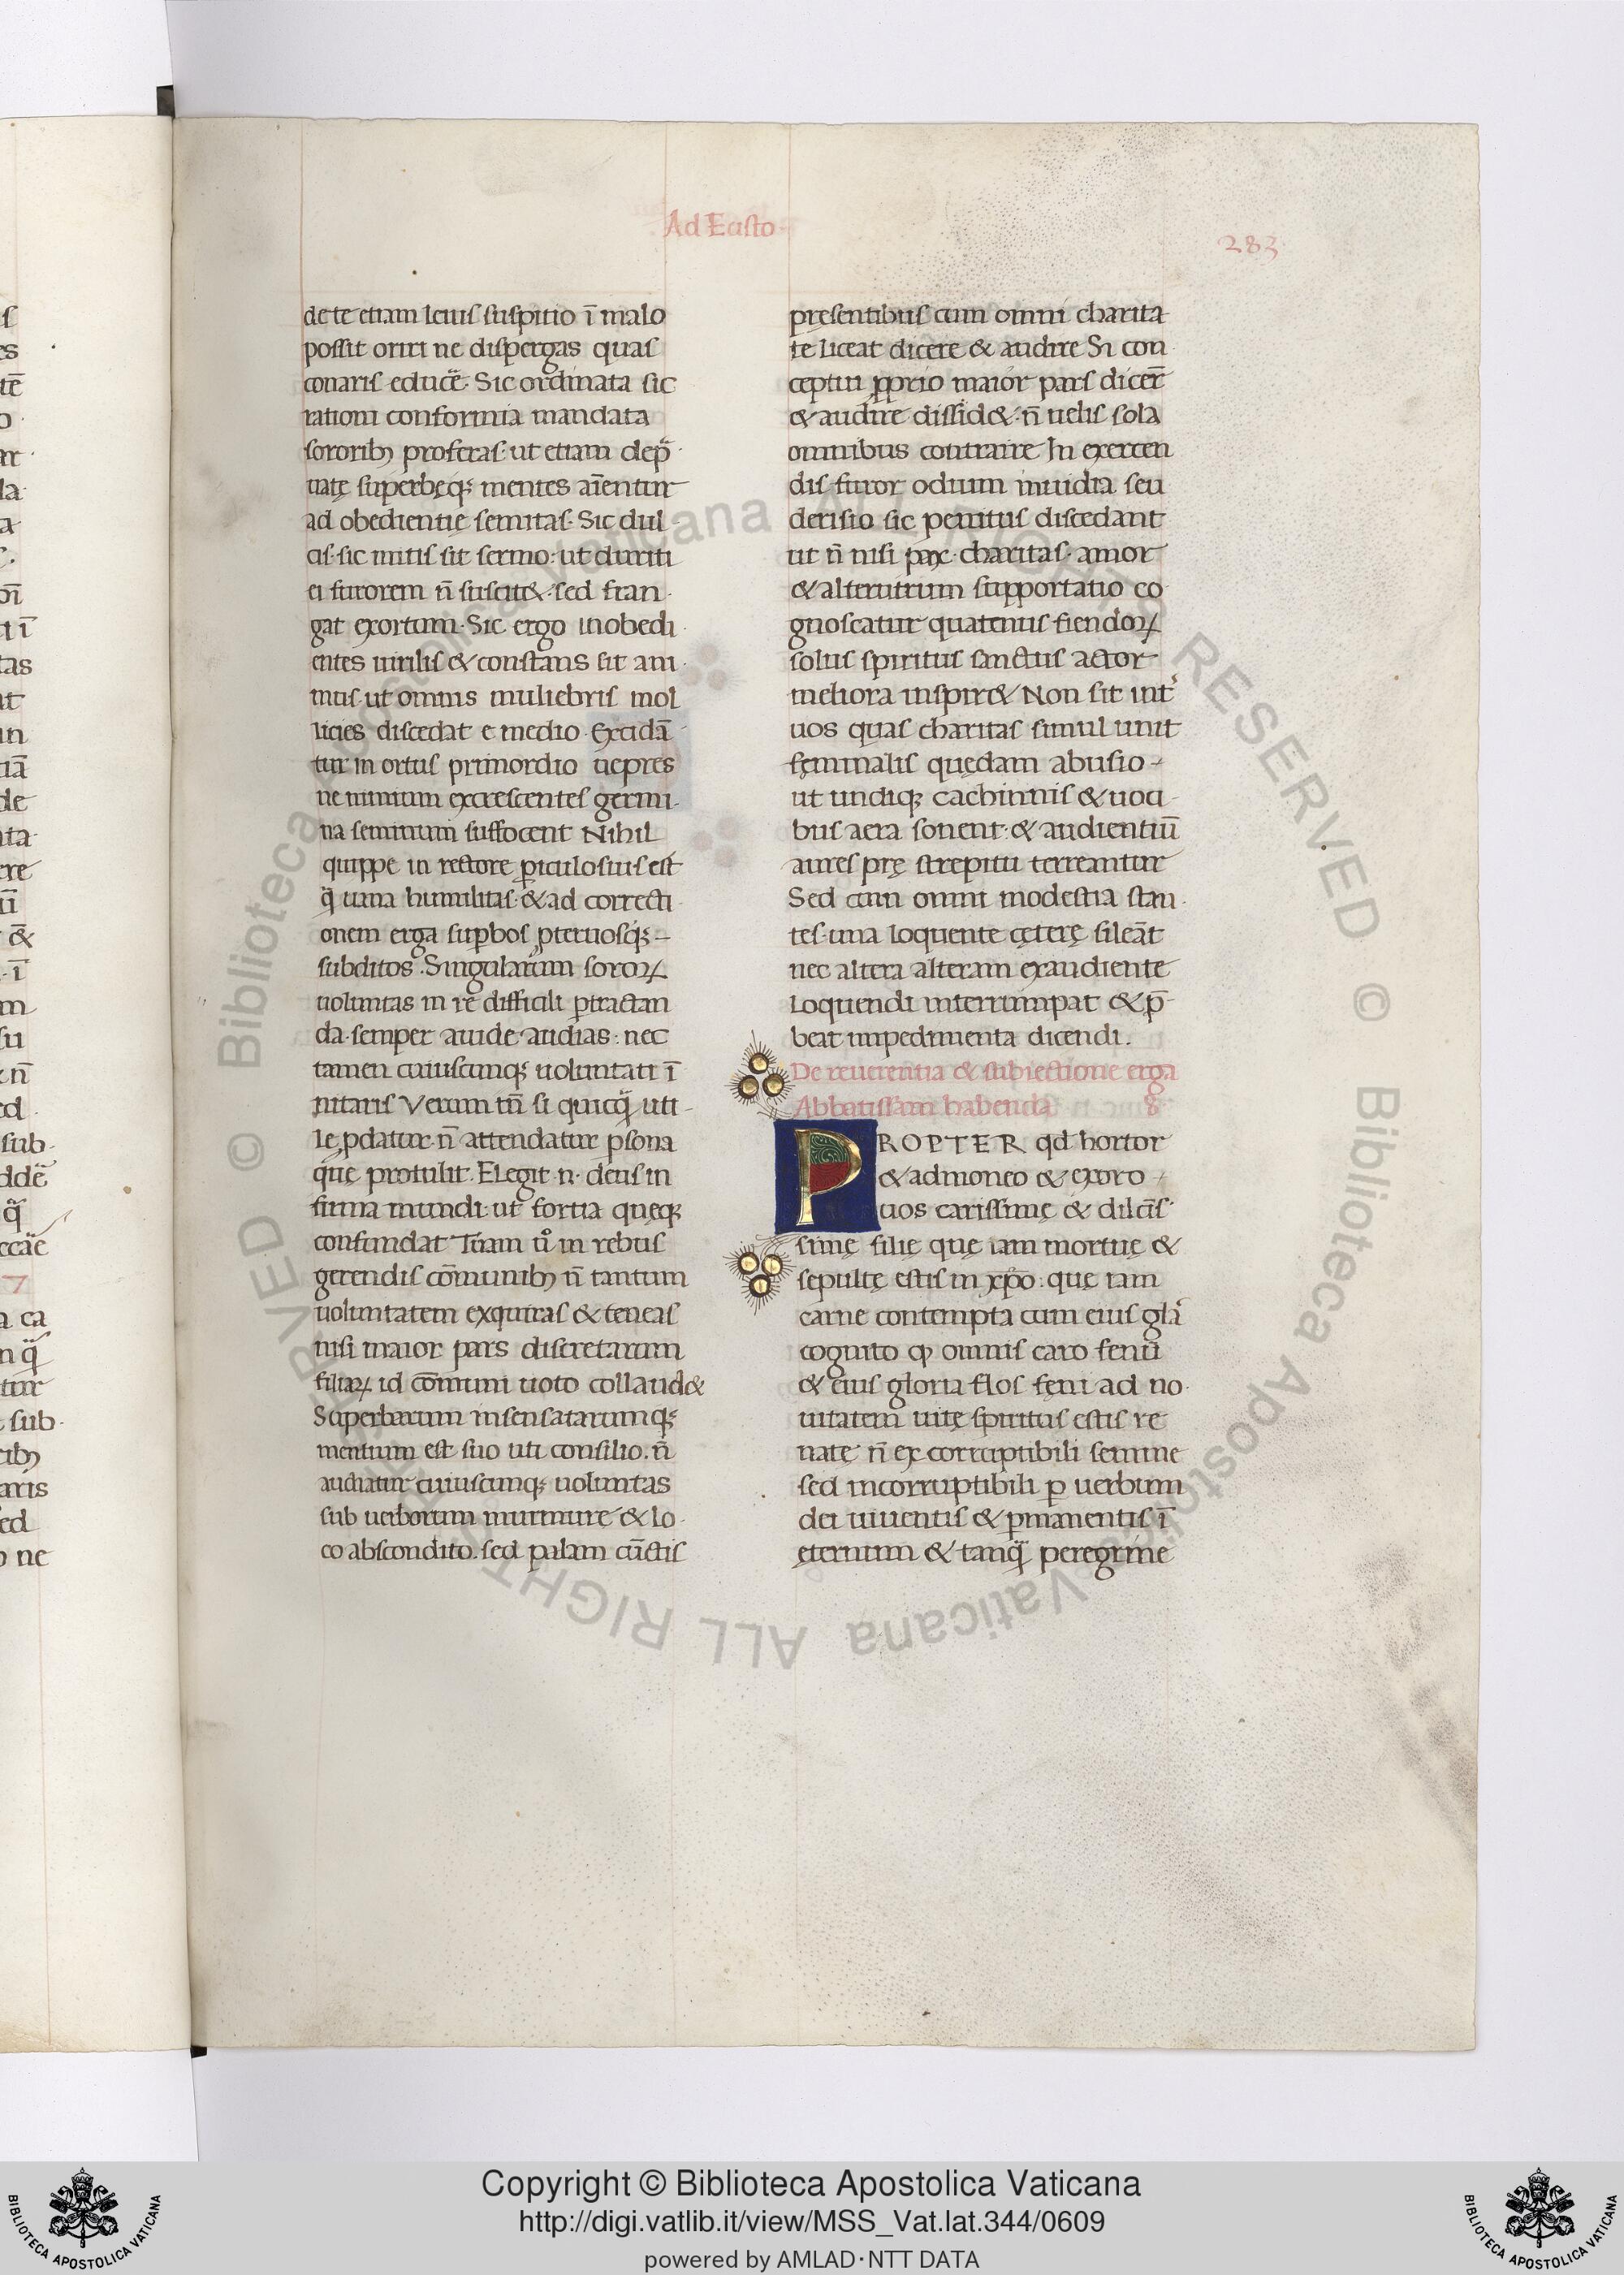 Ad Eusto
283
de te etiam leuis suspitio ī malo
possit oriri ne dispergas quas
conaris educẽ. Sic ordinata sic
rationi conformia mandata
sororib; proferas: ut etiam dep̃
uatę superbęq; mentes aĩentur
ad obedientię semitas. Sic dul
cis sic mitis sit sermo: ut duriti
ei furorem ñ suscit&. sed fran
gat exortum. Sic ergo inobedi
entes uirilis & constans sit ani
mus ut omnis muliebris mol
licies discedat e medio. Excidã
tur in ortus primordio uepres
ne nimium excrescentes germi
na seminum suffocent Nihil
quippe in rectore p̱iculosius est
q̃ uana humilitas. & ad correcti
onem erga sup̱bos, pteruosq;
subditos. Singularum sororꝝ
uoluntas in rẽ difficili p̱tractan
da. semper auide audias: nec
tamen cuiuscunq; uoluntati ī
nitaris Verum tñ si quicq̃ uti
le, pdatur ñ attendatur p̱sona
que protulit. Elegit .n. deus in
firma mundi: ut fortia quęq;
confundat Tuam ů in rebus
gerendis cõmunib; ñ tantum
uoluntatem exquiras & teneas
nisi maior pars discretarum
filiaꝝ id cõmuni uoto collaud&
Superbarum insensatarumq;
mentium est suo uti consilio. ñ
audiatur cuiuscunq; uoluntas
sub uerborum murmure & lo
co abscondito. sed palam cũctis
pręsentibus cum omni charita
te liceat dicere & audire Si con
ceptui ꝓprio maior pars dicer̃
& audire dissid&. ñ uelis sola
omnibus contraire In exercen
dis furor odium inuidia seu
derisio sic penitus discedant
ut ñ nisi pax. charitas. amor
& alterutrum supportatio co
gnoscatur quatenus fiendoꝝ
solus spiritus sanctus actor
meliora inspir& Non sit int̾
uos quas charitas simul unit
fęminalis quędam abusio
ut undiq; cachinnis & uoci
bus aera sonent: & audientiũ
aures prę strepitu terreantur
Sed cum omni modestia stan
tes. una loquente cęterę sileãt
nec altera alteram exaudiente
loquendi interrumpat & p̃
beat impedimenta dicendi.
De reuerentia & subiectione erga
Abbatissam habenda 8
PROPTER qd hortor
& admoneo & exoro
uos carissimę & dilcĩs
simę filię quę iam mortuę &
sepultę estis in xp̃o: quę iam
carne contempta cum eius glã
cognito ꝙ omnis caro fenũ
& eius gloria flos fęni ad no
uitatem uitę spiritus estis re
natę ñ ex corruptibili semine
sed incorruptibili p̱ uerbum
dei uiuentis & p̱manentis ī
ęternum & tanq̃ peregrinę
Copyright © Biblioteca Apostolica Vaticana
http://digi.vatlib.it/view/MSS_Vat.lat.344/0609
powered by AMLAD·NTT DATA